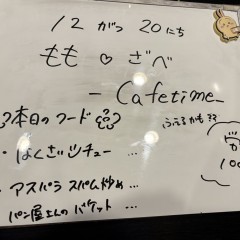 12 がつ 20 にち
もも ♡ ざべ
- Cafetime -
本日のフード
・はくさいシチュー …
・アスパラ スパム炒め …
パン屋さんの バケット …
ふえるかも??
100